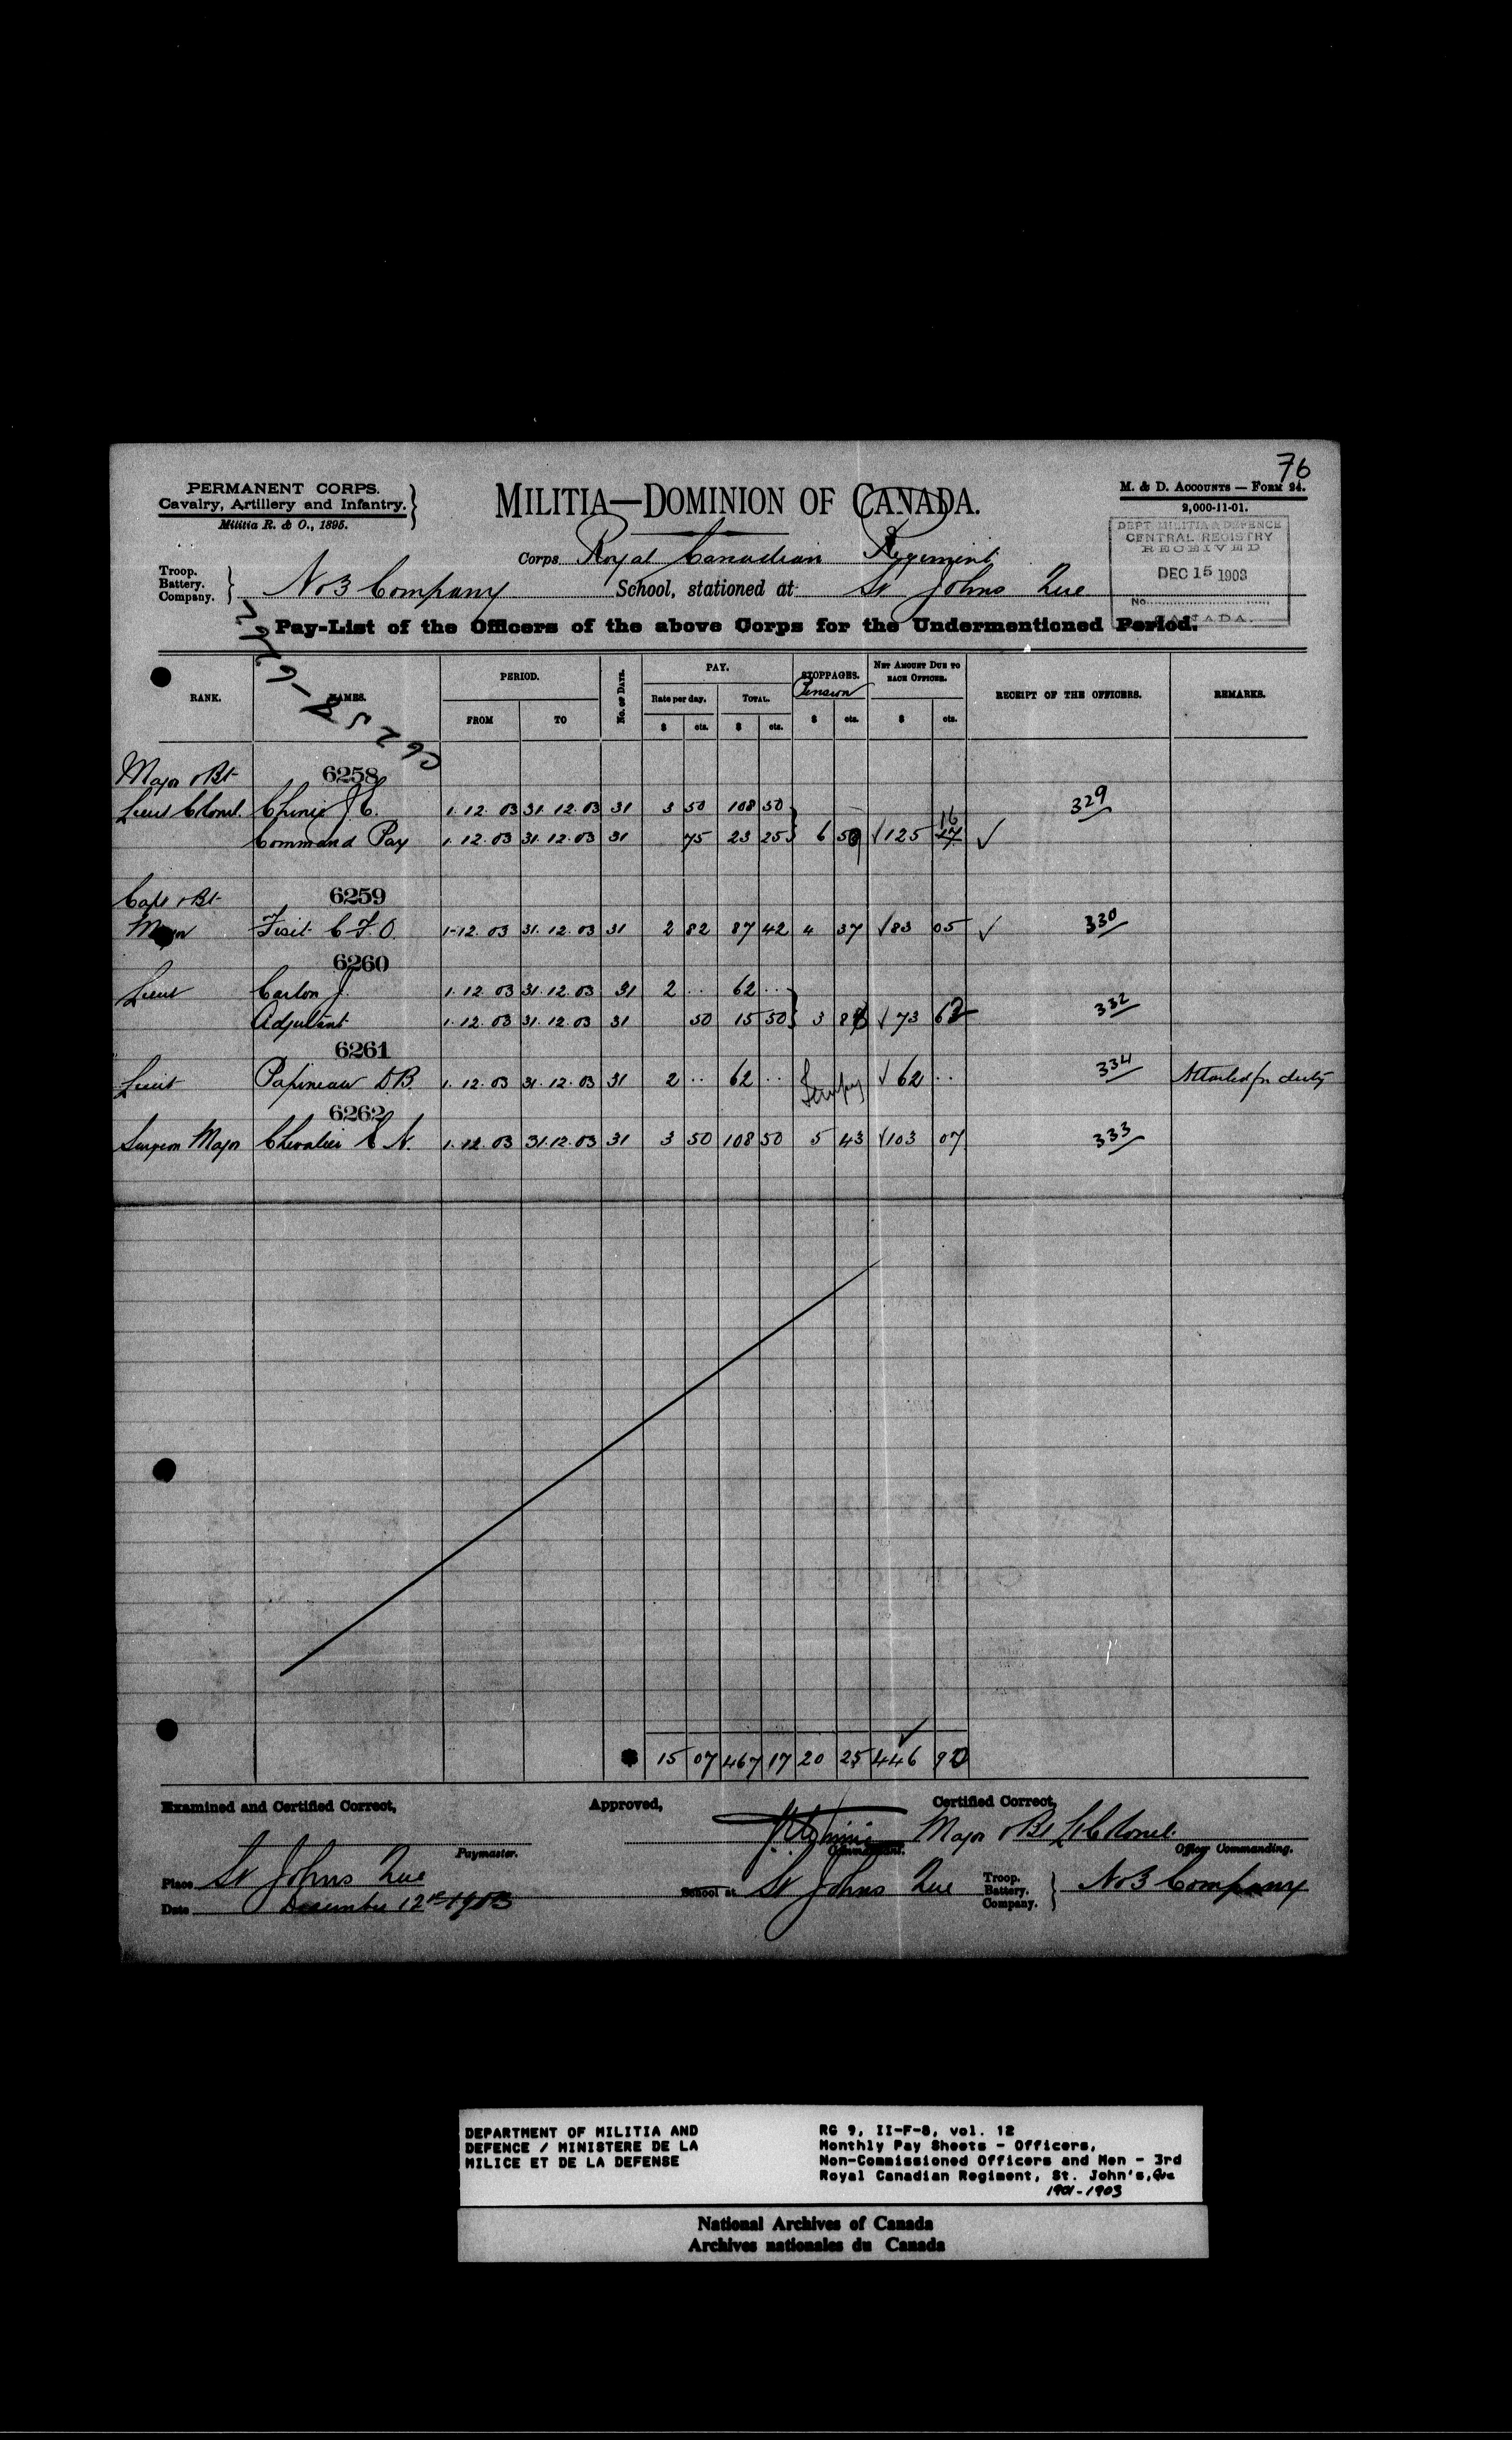 76
PERMANENT CORPS.
Cavalry, Artillery and Infantry.
Militia R. & O., 1895.
MILITIA—DOMINION OF CANADA.
M. & D. ACCOUNTS — FORM 24.
2,000-11-01.
DEPT MILITIA & DEFENCE
CENTRAL REGISTRY
RECEIVED
DEC 15 1903
No
CANADA.
Corps Royal Canadian Regiment
Troop.
Battery.
Company.
No 3 Company School, stationed at St Johns Que
Pay-List of the Officers of the above Corps for the Undermentioned Period.
6258-6262
RANK. NAMES. PERIOD. FROM TO No. OF DAYS. PAY. Rate per day. $ cts. TOTAL. $ cts. STOPPAGES. Pension $ cts. NET AMOUNT DUE TO EACH OFFICER. $ cts. RECEIPT OF THE OFFICERS. REMARKS.
Major & Bt 6258
Lieut Colonel Chinic J.C. 1.12.03 31.12.03 31 3 50 108 50 329
Command Pay 1.12.03 31.12.03 31 75 23 25 6 59 √125 17 16 √
Capt & Bt 6259
Major Fiset C F.O. 1-12.03 31.12.03 31 2 82 87 42 4 37 √83 05 √ 330
6260
Lieut Carlon J. 1.12.03 31.12.03 31 2 .. 62 ..
Adjutant 1.12.03 31.12.03 31 50 15 50 3 8 √73 62 332
6261
Lieut Papineau D.B. 1.12.03 31.12.03 31 2 .. 62 .. √62 .. 334 Attached for duty
6262
Surgeon Major Chevalier C N. 1.12.03 31.12.03 31 3 50 108 50 5 43 √103 07 333
15 07 467 17 20 25 446 92
Examined and Certified Correct, Approved, Certified Correct,
Major & Bt Lt Colonel
Paymaster. Commandant. Officer Commanding.
Place St Johns Que School at St Johns Que
Troop.
Battery.
Company.
No 3 Company
Date December 12th 1903
DEPARTMENT OF MILITIA AND
DEFENCE / MINISTERE DE LA
MILICE ET DE LA DEFENSE
RG 9, II-F-8, vol. 12
Monthly Pay Sheets - Officers,
Non-Commissioned Officers and Men - 3rd
Royal Canadian Regiment, St. John's, Que
1901-1903
National Archives of Canada
Archives nationales du Canada